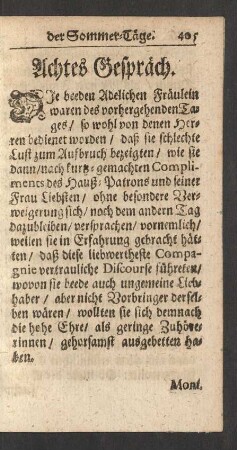 der Sommer-Täge. 405
Achtes Gespräch.
DIe beeden Adelichen Fräulein
waren des vorhergehenden Ta-
ges / so wohl von denen Her-
ren bedienet worden / daß sie schlechte
Lust zum Aufbruch bezeigten / wie sie
dann / nach kurtz-gemachten Compli-
ments des Hauß-Patrons und seiner
Frau Liebsten / ohne besondere Ver-
weigerung sich / noch dem andern Tag
dazubleiben / versprachen / vornemlich /
weilen sie in Erfahrung gebracht hät-
ten / daß diese liebwertheste Compa-
gnie vertrauliche Discourse führeten /
wovon sie beede auch ungemeine Lieb-
haber / aber nicht Vorbringer dersel-
ben wären / wollten sie sich demnach
die hohe Ehre / als geringe Zuhöre-
rinnen / gehorsamst ausgebetten ha-
ben.
Mont.